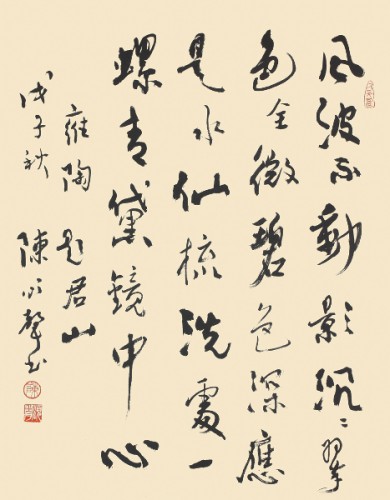 风波不動影沉〻翠
色全微碧色深應
是水仙梳洗處一
螺青黛鏡中心
雍陶题君山
戊子秋陳聲书